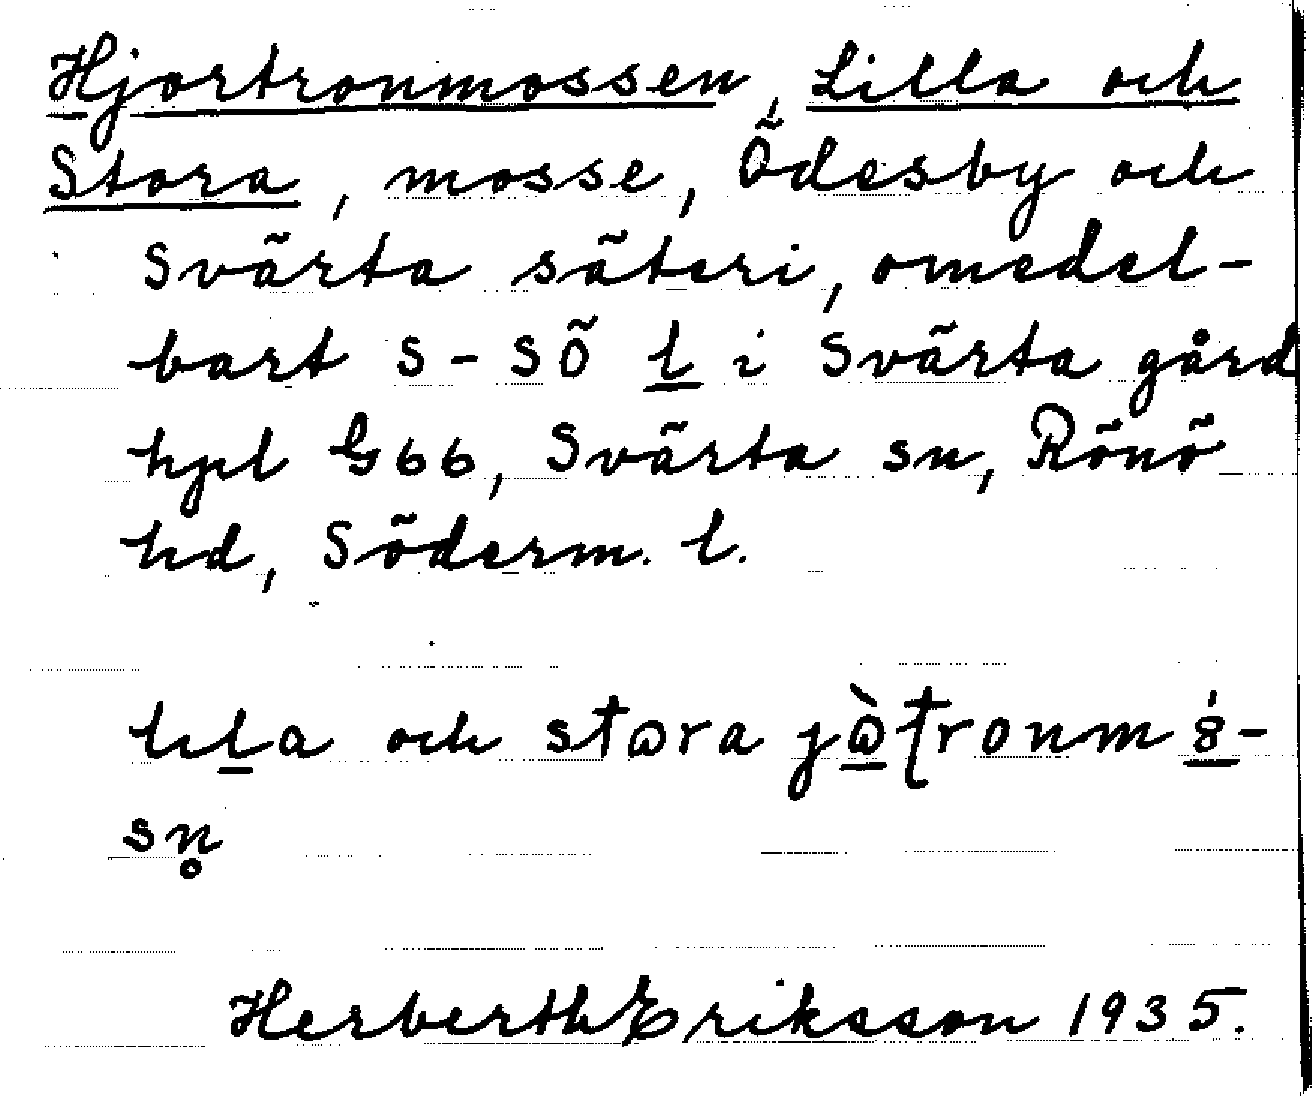 Hjortronmossen, Lilla och
Stora, mosse, Ödesby och
Svärta säteri, omedel-
bart S-SÖ l i Svärta gård
hpl G66, Svärta sn, Rönö
hd, Söderm. l.
och stora
Herberth Eriksson 1935.